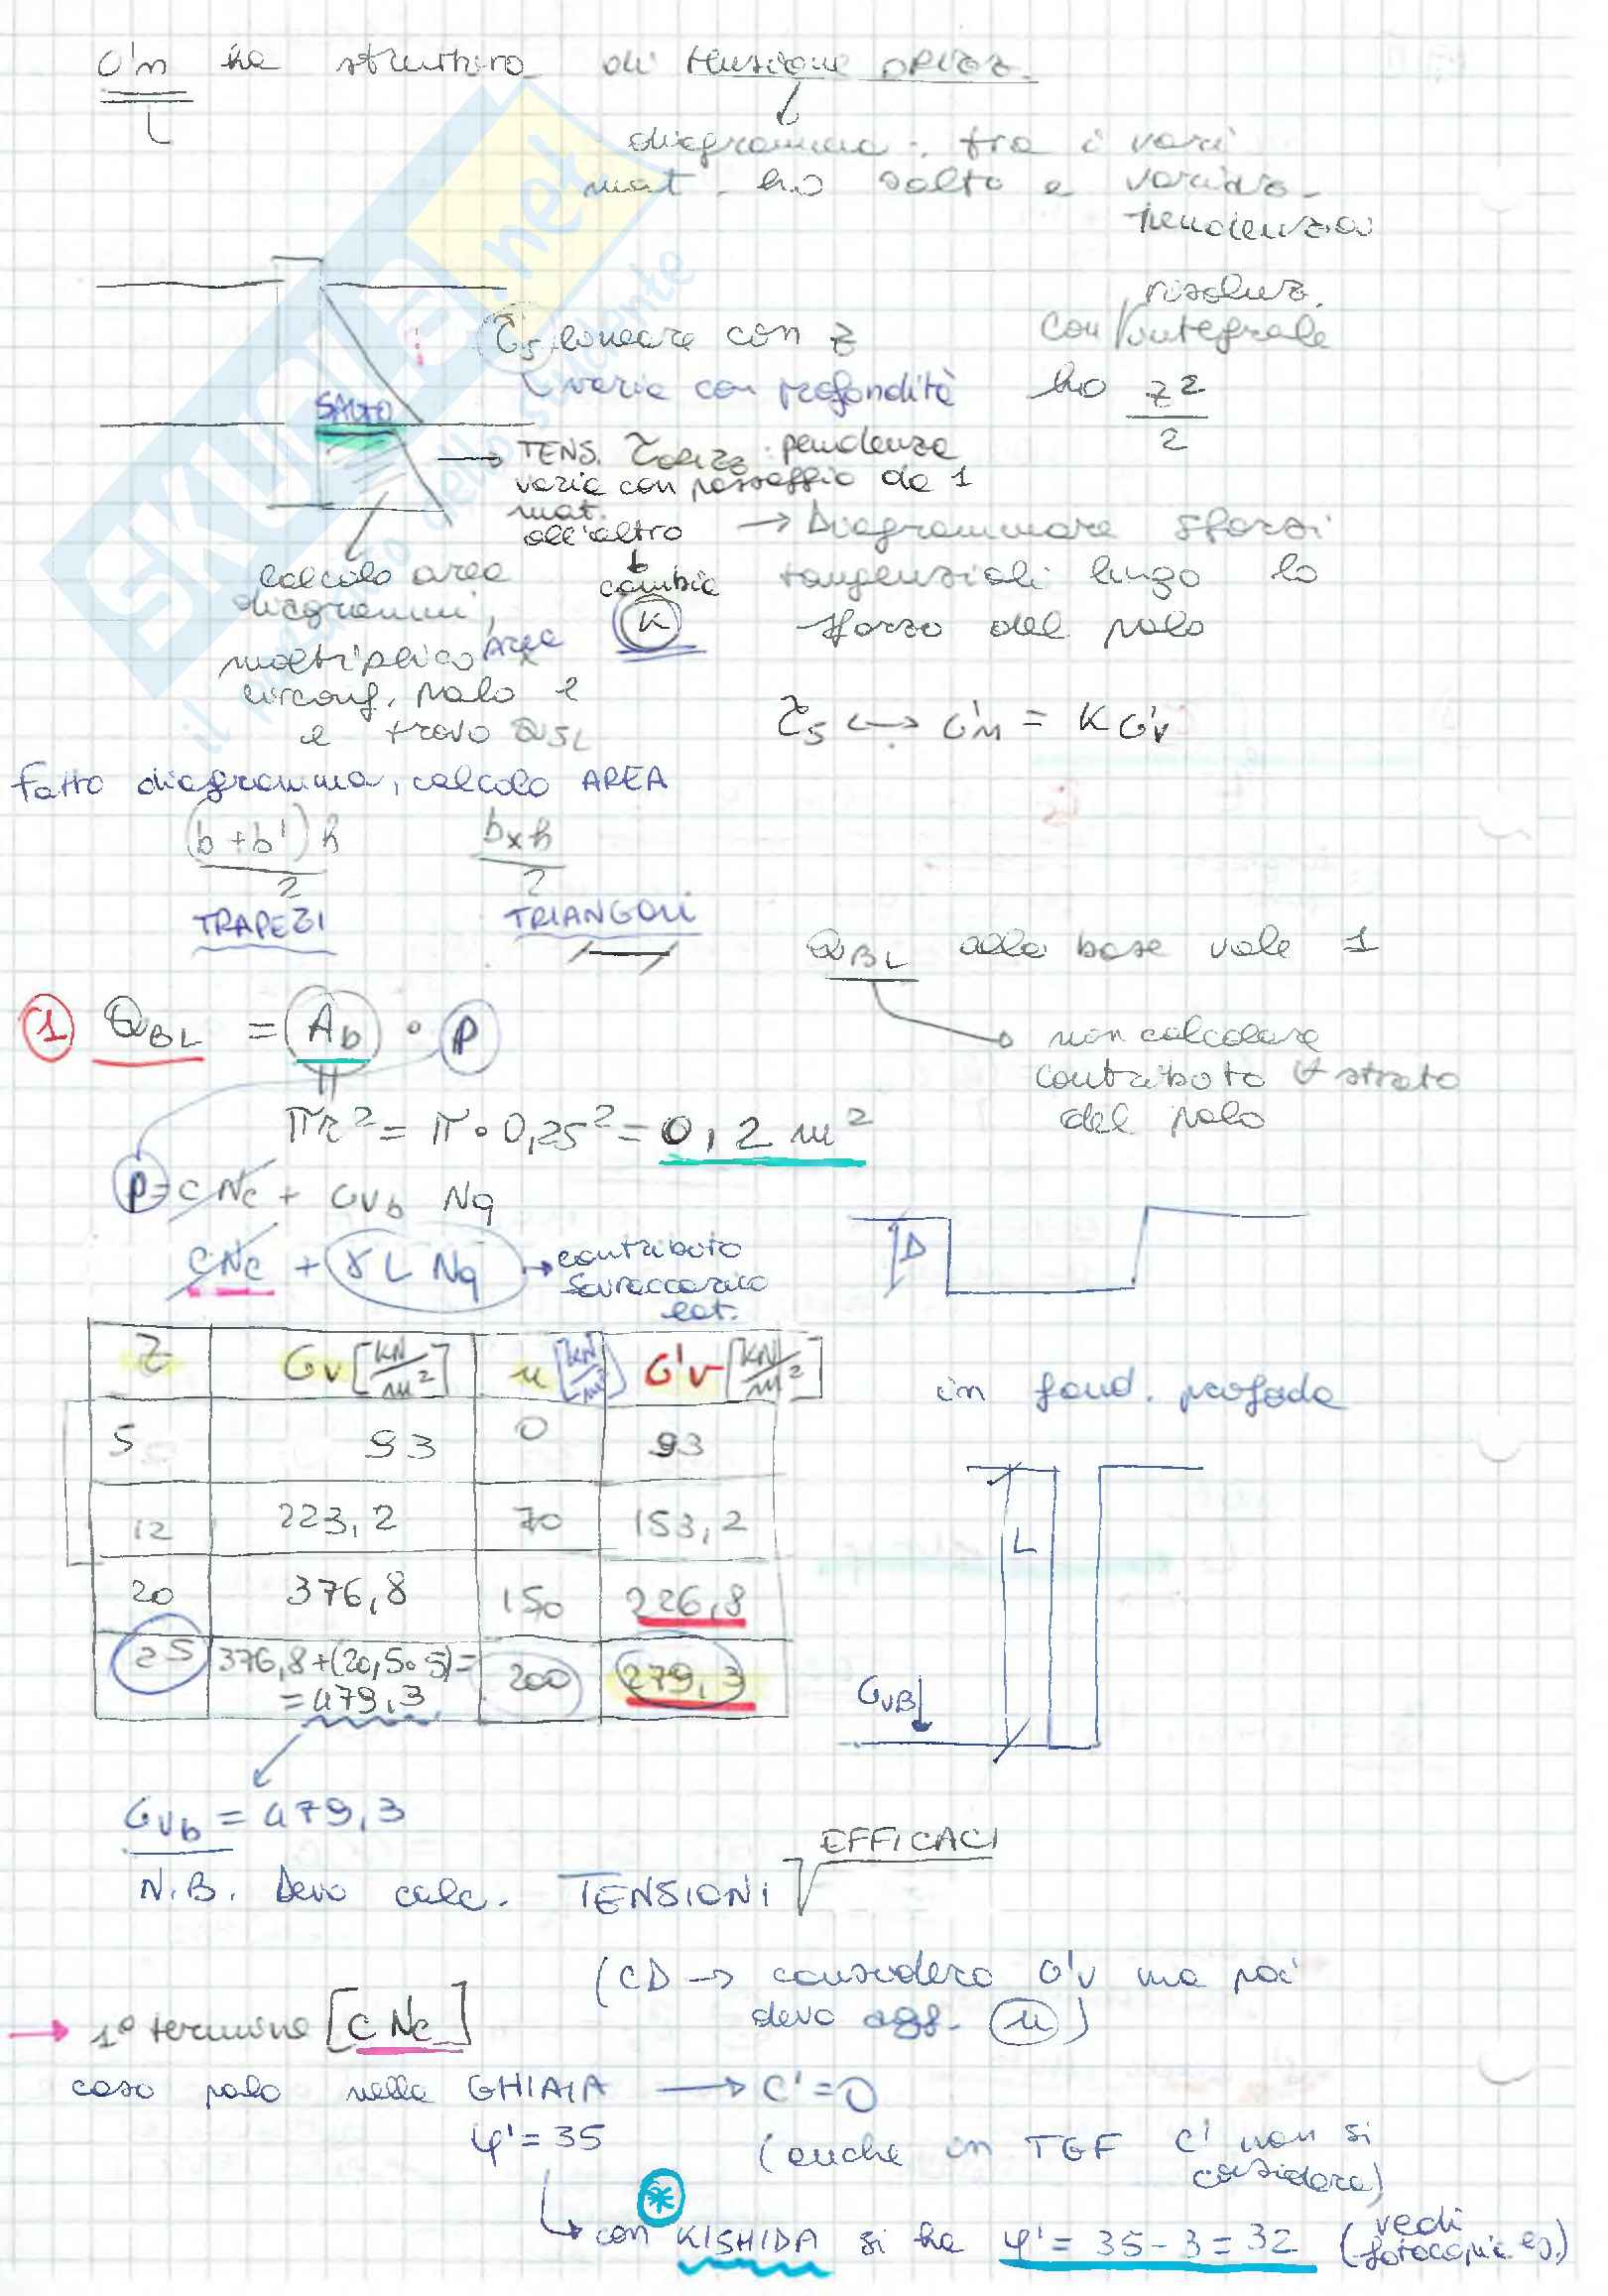 σ'n ha struttura di tensione orizz.
diagramma: tra i vari
mat. ho salto e variaz.
pendenza
SKUOLA.net
il paradiso dello studente
τs lineare con z
varia con profondità
risoluz.
con integrale
ho z²/2
SALTO
→ TENS. τorizz: pendenza
varia con passaggio da 1
mat.
all'altro
cambia
K
→ Diagrammare sforzi
tangenziali lungo lo
sforzo del palo
calcolo area
diagrammi,
moltiplico area x
circonf. palo e
e trovo QSL
τs ↔ σ'n = K σ'v
Fatto diagramma, calcolo AREA
(b+b')h/2
b x h/2
TRAPEZI
TRIANGOLI
QBL alla base vale 1
non calcolare
contributo ∀ strato
del palo
1 QBL = Ab · P
πr² = π · 0,25² = 0,2 m²
P = cNc + σvb Nq
cNc + γL Nq → contributo
sovraccarico
lat.
D
Z σv [kN/m²] u [kN/m²] σ'v [kN/m²]
5 93 0 93
12 223,2 70 153,2
20 376,8 150 226,8
25 376,8+(20,5·5)= 200 279,3
= 479,3
in fond. profonda
L
σvB
σvb = 479,3
N.B. Devo calc. TENSIONI EFFICACI
(CD → considero σ'v ma poi
devo agg. u)
→ 1° termine [c Nc]
caso palo nella GHIAIA → C'=0
φ'=35
(anche in TGF c' non si
considera)
* con KISHIDA si ha φ' = 35-3 = 32 (vedi
fotocopia es.)